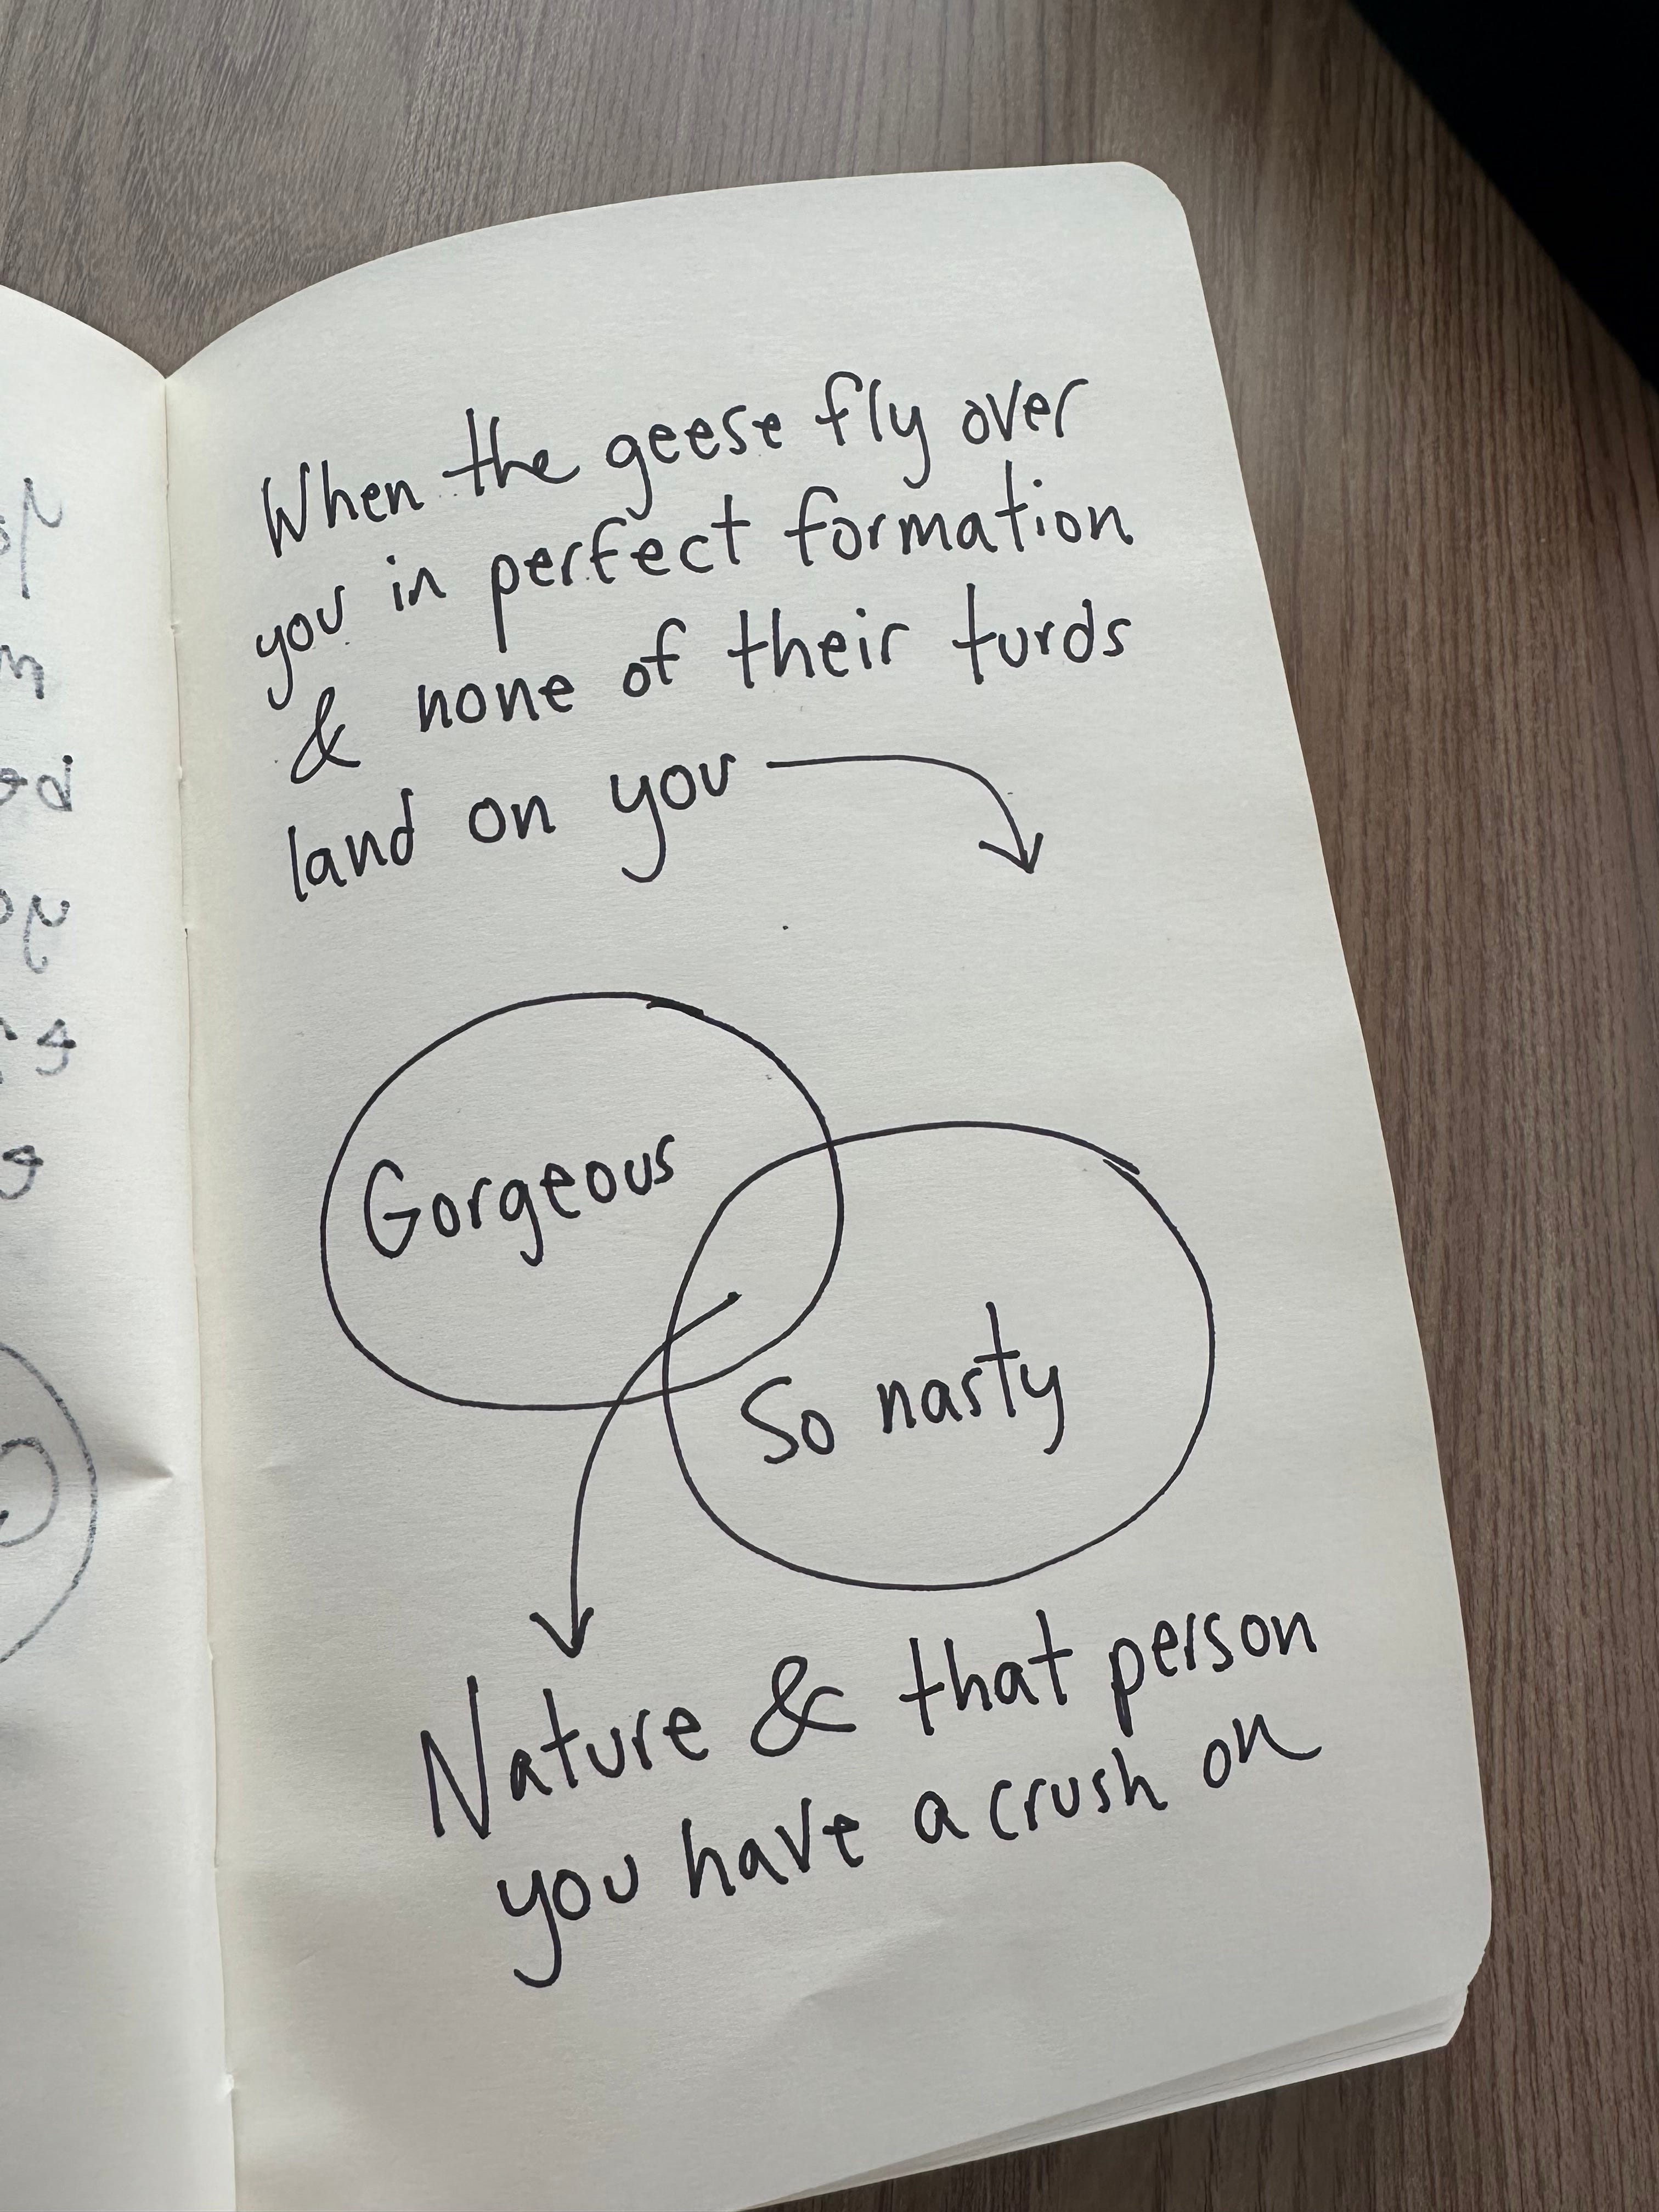 When the geese fly over
you in perfect formation
& none of their turds
land on you
Gorgeous
So nasty
Nature & that person
you have a crush on